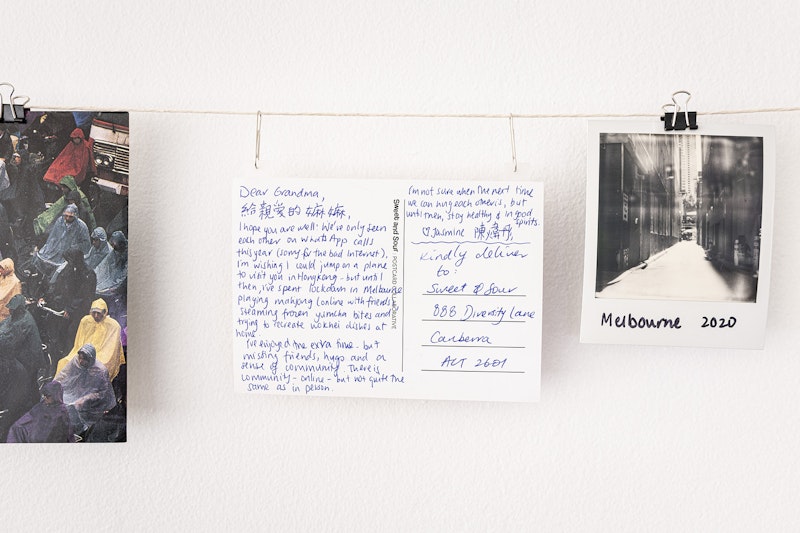 Dear Grandma,
給親愛的嫲嫲,
I hope you are well. We've only seen
each other on WhatsApp calls
this year (sorry for the bad internet).
I'm wishing I could jump on a plane
to visit you in Hong Kong - but until
then, i've spent lockdown in Melbourne
playing mahjong (online with friends),
steaming frozen yumcha bites and
trying to recreate wokhei dishes at
home.
I've enjoyed the extra time - but
missing friends, hugs and a
sense of community. There is
community - online - but not quite the
same as in person.
Sweet and Sour POSTCARD
I'm not sure when the next time
we can hug each other is, but
until then, stay healthy & in good
spirits.
♡ Jasmine 陳
Kindly deliver
to:
Sweet & Sour
888 Diversity Lane
Canberra
ACT 2601
Melbourne 2020